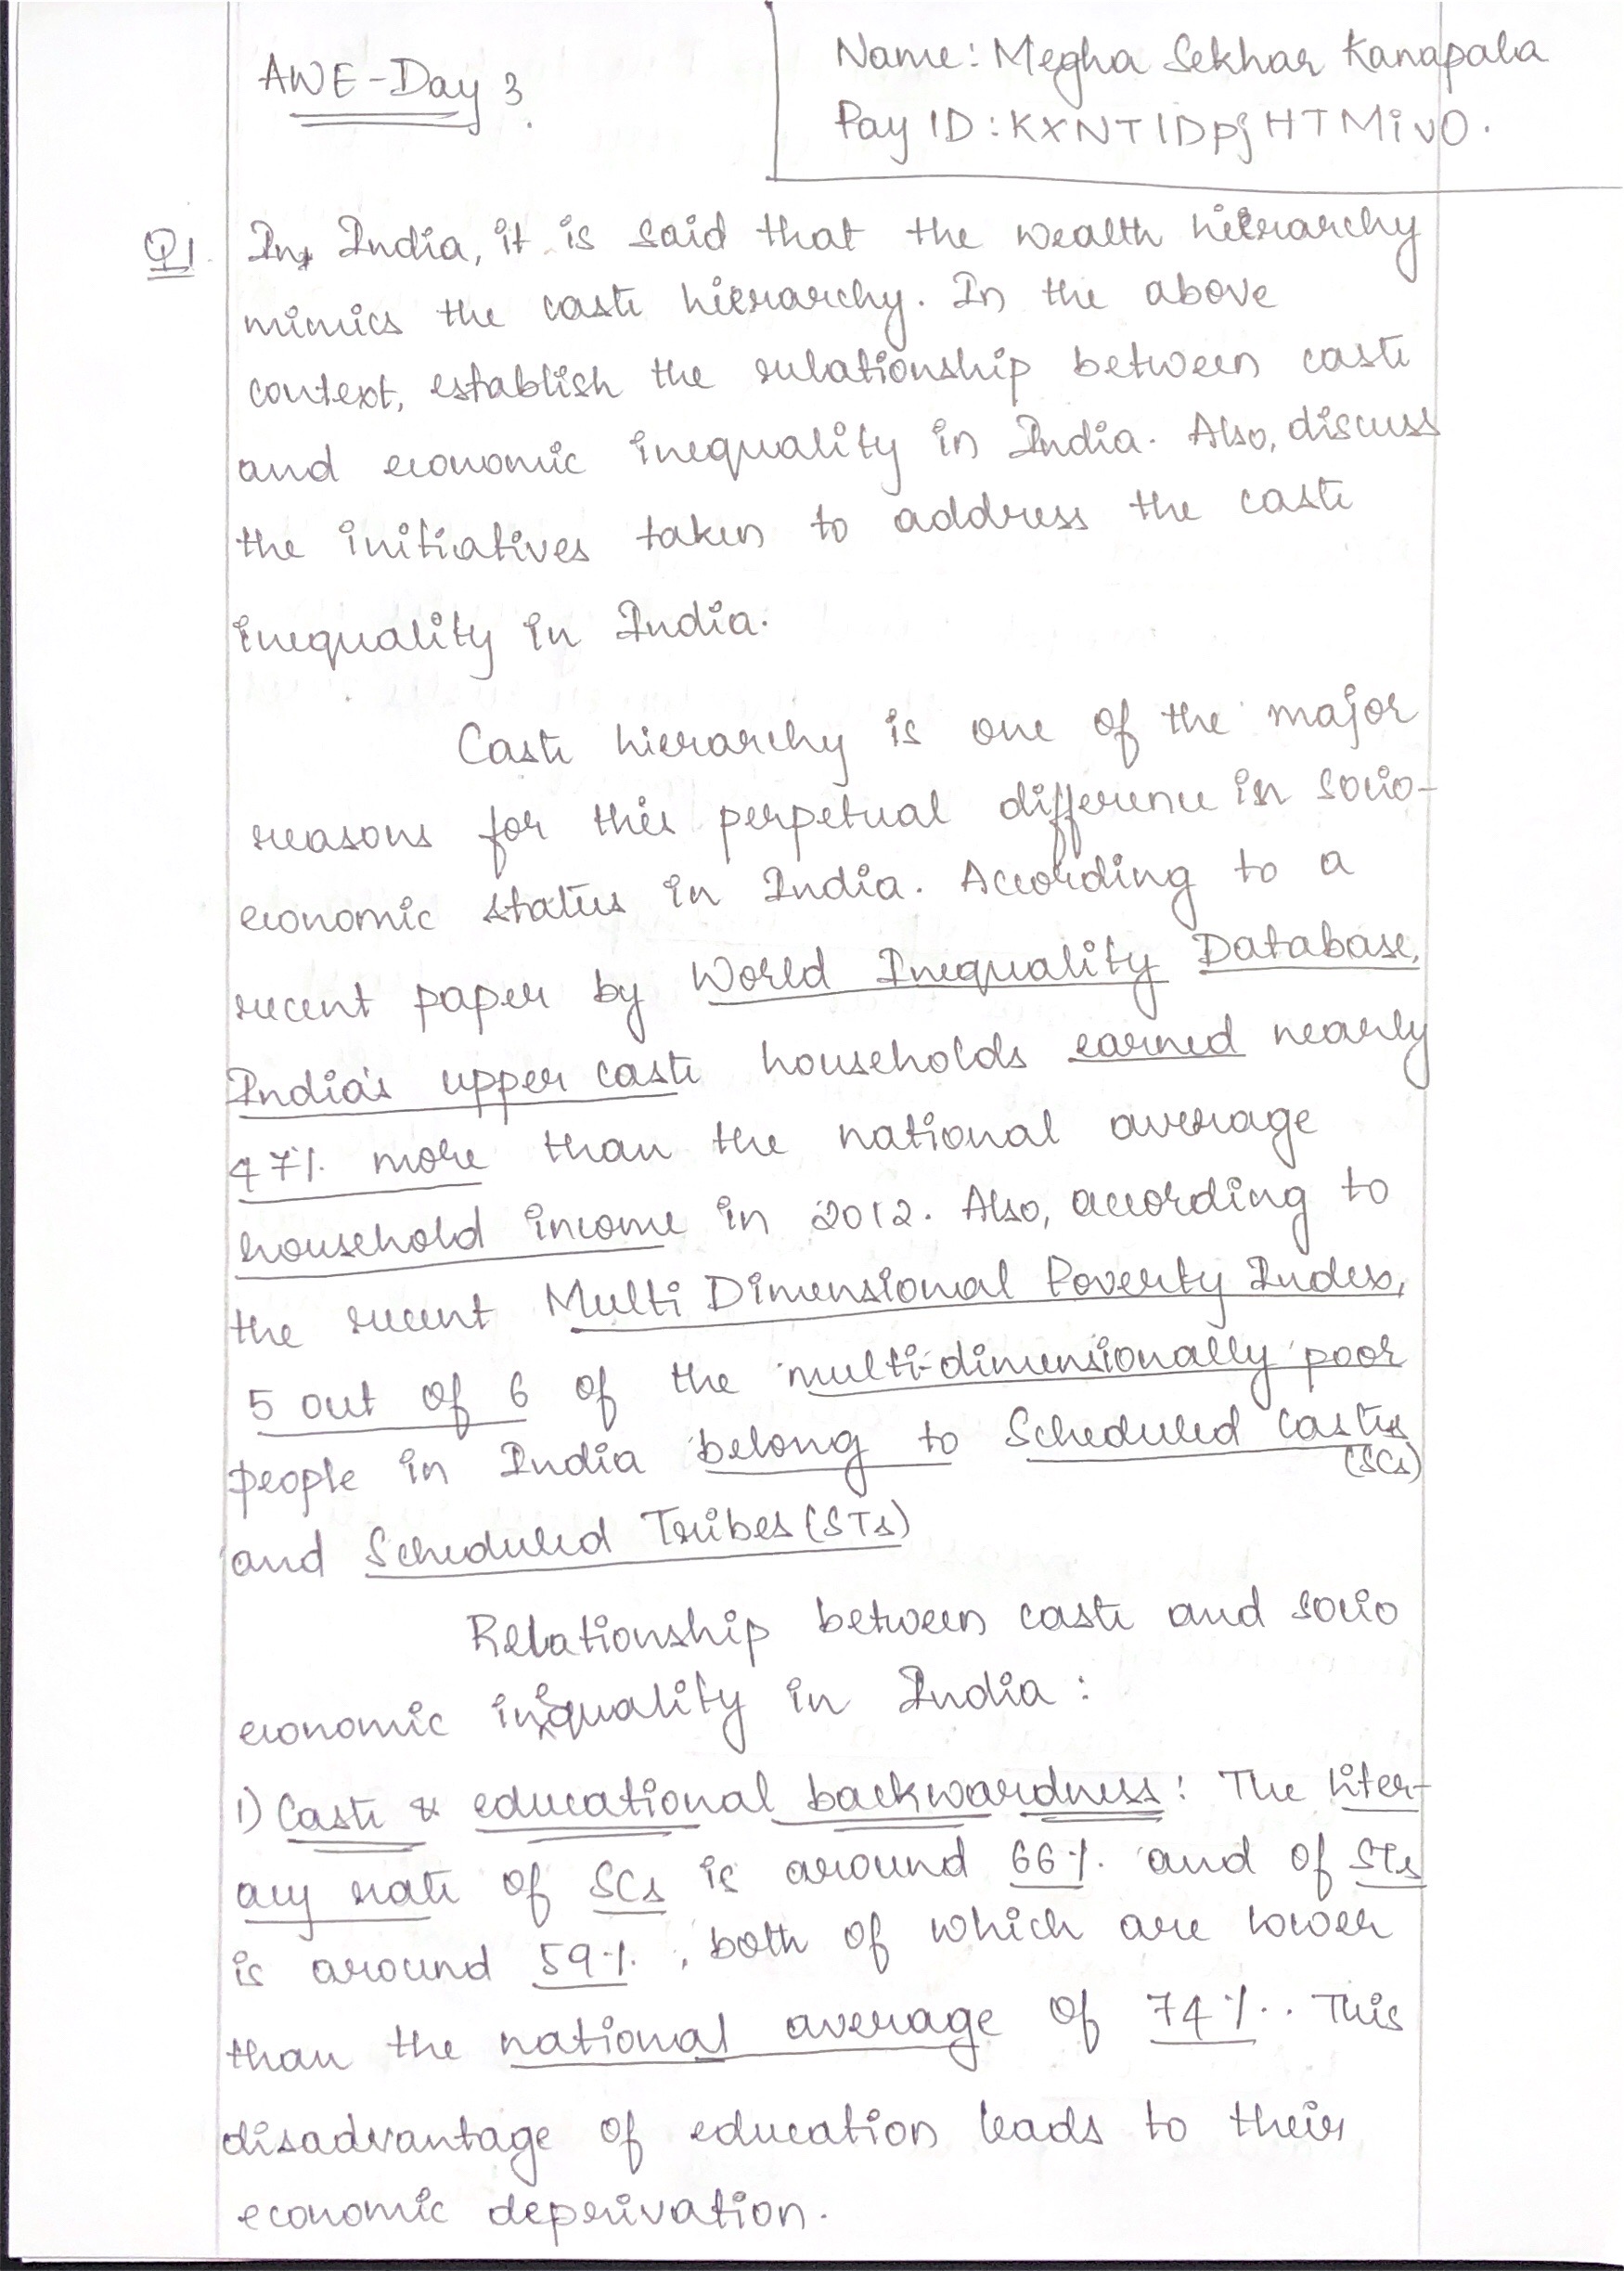 AWE-Day 3.
Name: Megha Sekhar Kanapala
Pay ID: KXNTIDpjHTMivO.
Q1. In India, it is said that the wealth hierarchy
mimics the caste hierarchy. In the above
context, establish the relationship between caste
and economic inequality in India. Also, discuss
the initiatives taken to address the caste
inequality in India.
Caste hierarchy is one of the major
reasons for this perpetual difference in socio-
economic status in India. According to a
recent paper by World Inequality Database,
India's upper caste households earned nearly
47% more than the national average
household income in 2012. Also, according to
the recent Multi Dimensional Poverty Index,
5 out of 6 of the multi-dimensionally poor
people in India belong to Scheduled Castes
(SCs)
and Scheduled Tribes (STs)
Relationship between caste and socio
economic inequality in India:
1) Caste & educational backwardness: The liter-
acy rate of SCs is around 66%. and of STs
is around 59%., both of which are lower
than the national average of 74%.. This
disadvantage of education leads to their
economic deprivation.